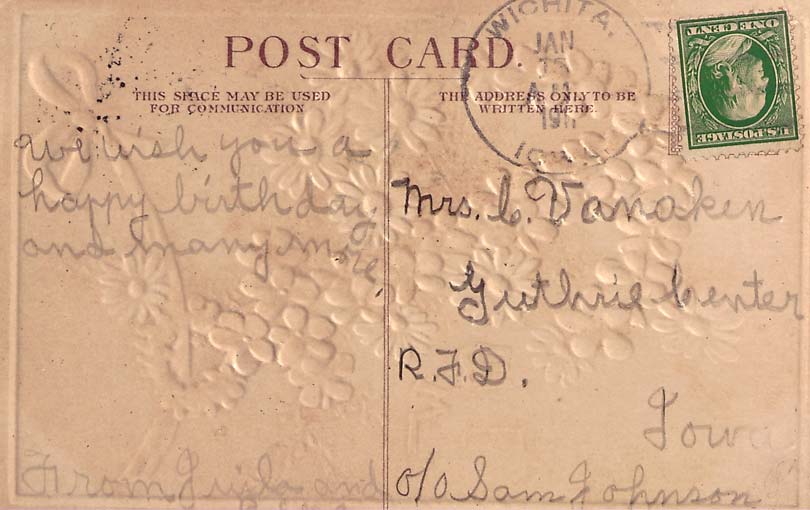 POST CARD.
THIS SPACE MAY BE USED
FOR COMMUNICATION
THE ADDRESS ONLY TO BE
WRITTEN HERE.
WICHITA,
JAN
1911
IOWA
U.S. POSTAGE
ONE CENT
We wish you a
happy birthday
and many more,
From and
Mrs. C. Vanaken
Guthrie Center
R.F.D.
Iowa
c/o Sam Johnson